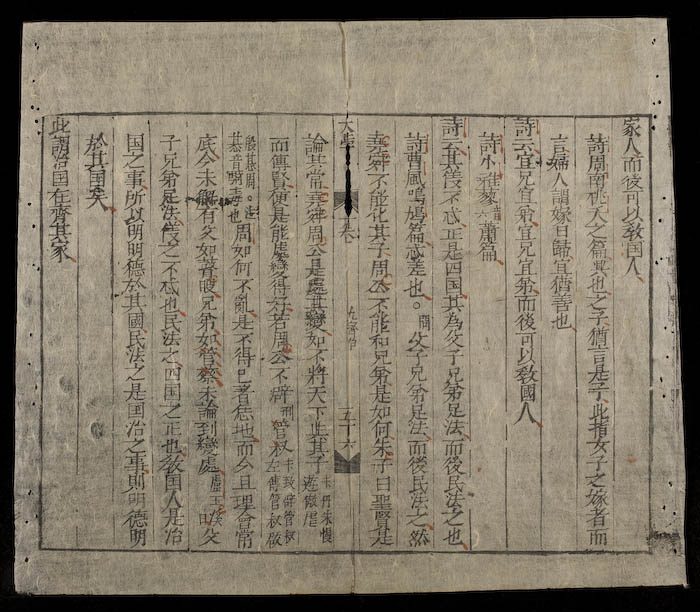 家人而後可以教国人
詩周南桃夭之篇興也之子猶言是子此指女子之嫁者而
言婦人謂嫁曰歸宜猶善也
詩云宜兄宜弟宜兄宜弟而後可以教國人
詩小雅蓼蕭篇
詩云其儀不忒正是四国其為父子兄弟足法而後民法之也
詩曹風鳴鳩篇忒差也。問父子兄弟足法而後民法之然
堯舜不能化其子周公不能和兄弟是如何朱子曰聖賢是
大學 卷 五十六
論其常堯舜周公是處其變如不將天下与其子丹朱慢遊傲虐
而傳賢便是能處變得好若周公不辟管叔致辟管叔左傳管叔啟
周如何不亂是不得已著恁地而今且理會常
底今未解有父如瞽瞍兄弟如管蔡未論到變處玉溪曰父
子兄弟足法儀之不忒也民法之四国之正也教国人是治
国之事所以明明德於其國民法之是国治之事則明德明
於其国矣
此謂治国在齊其家